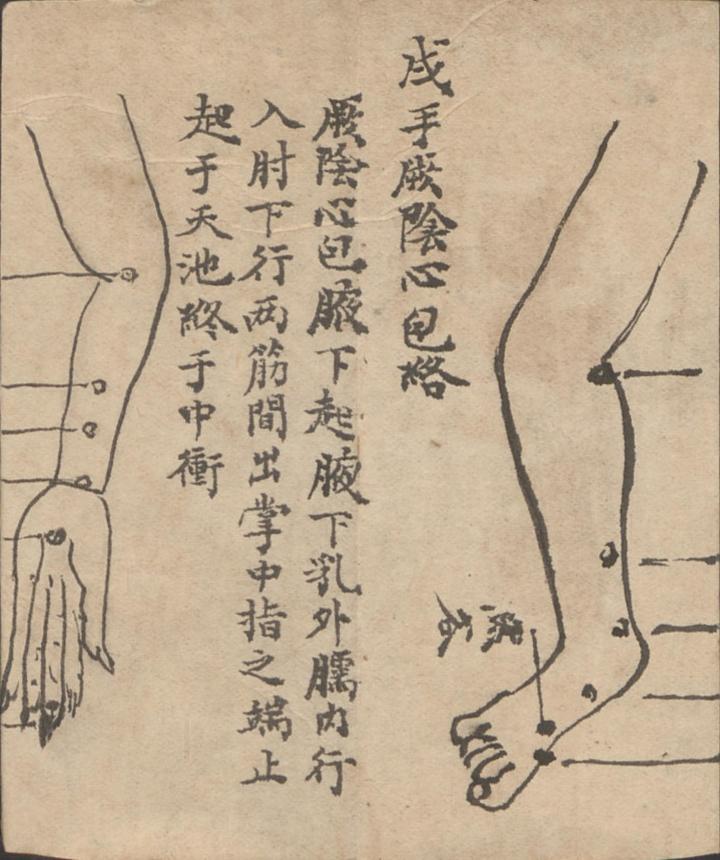 戌手厥陰心包絡
厥陰心包腋下起腋下乳外臑内行
入肘下行两筋間出掌中指之端止
起于天池終于中衝